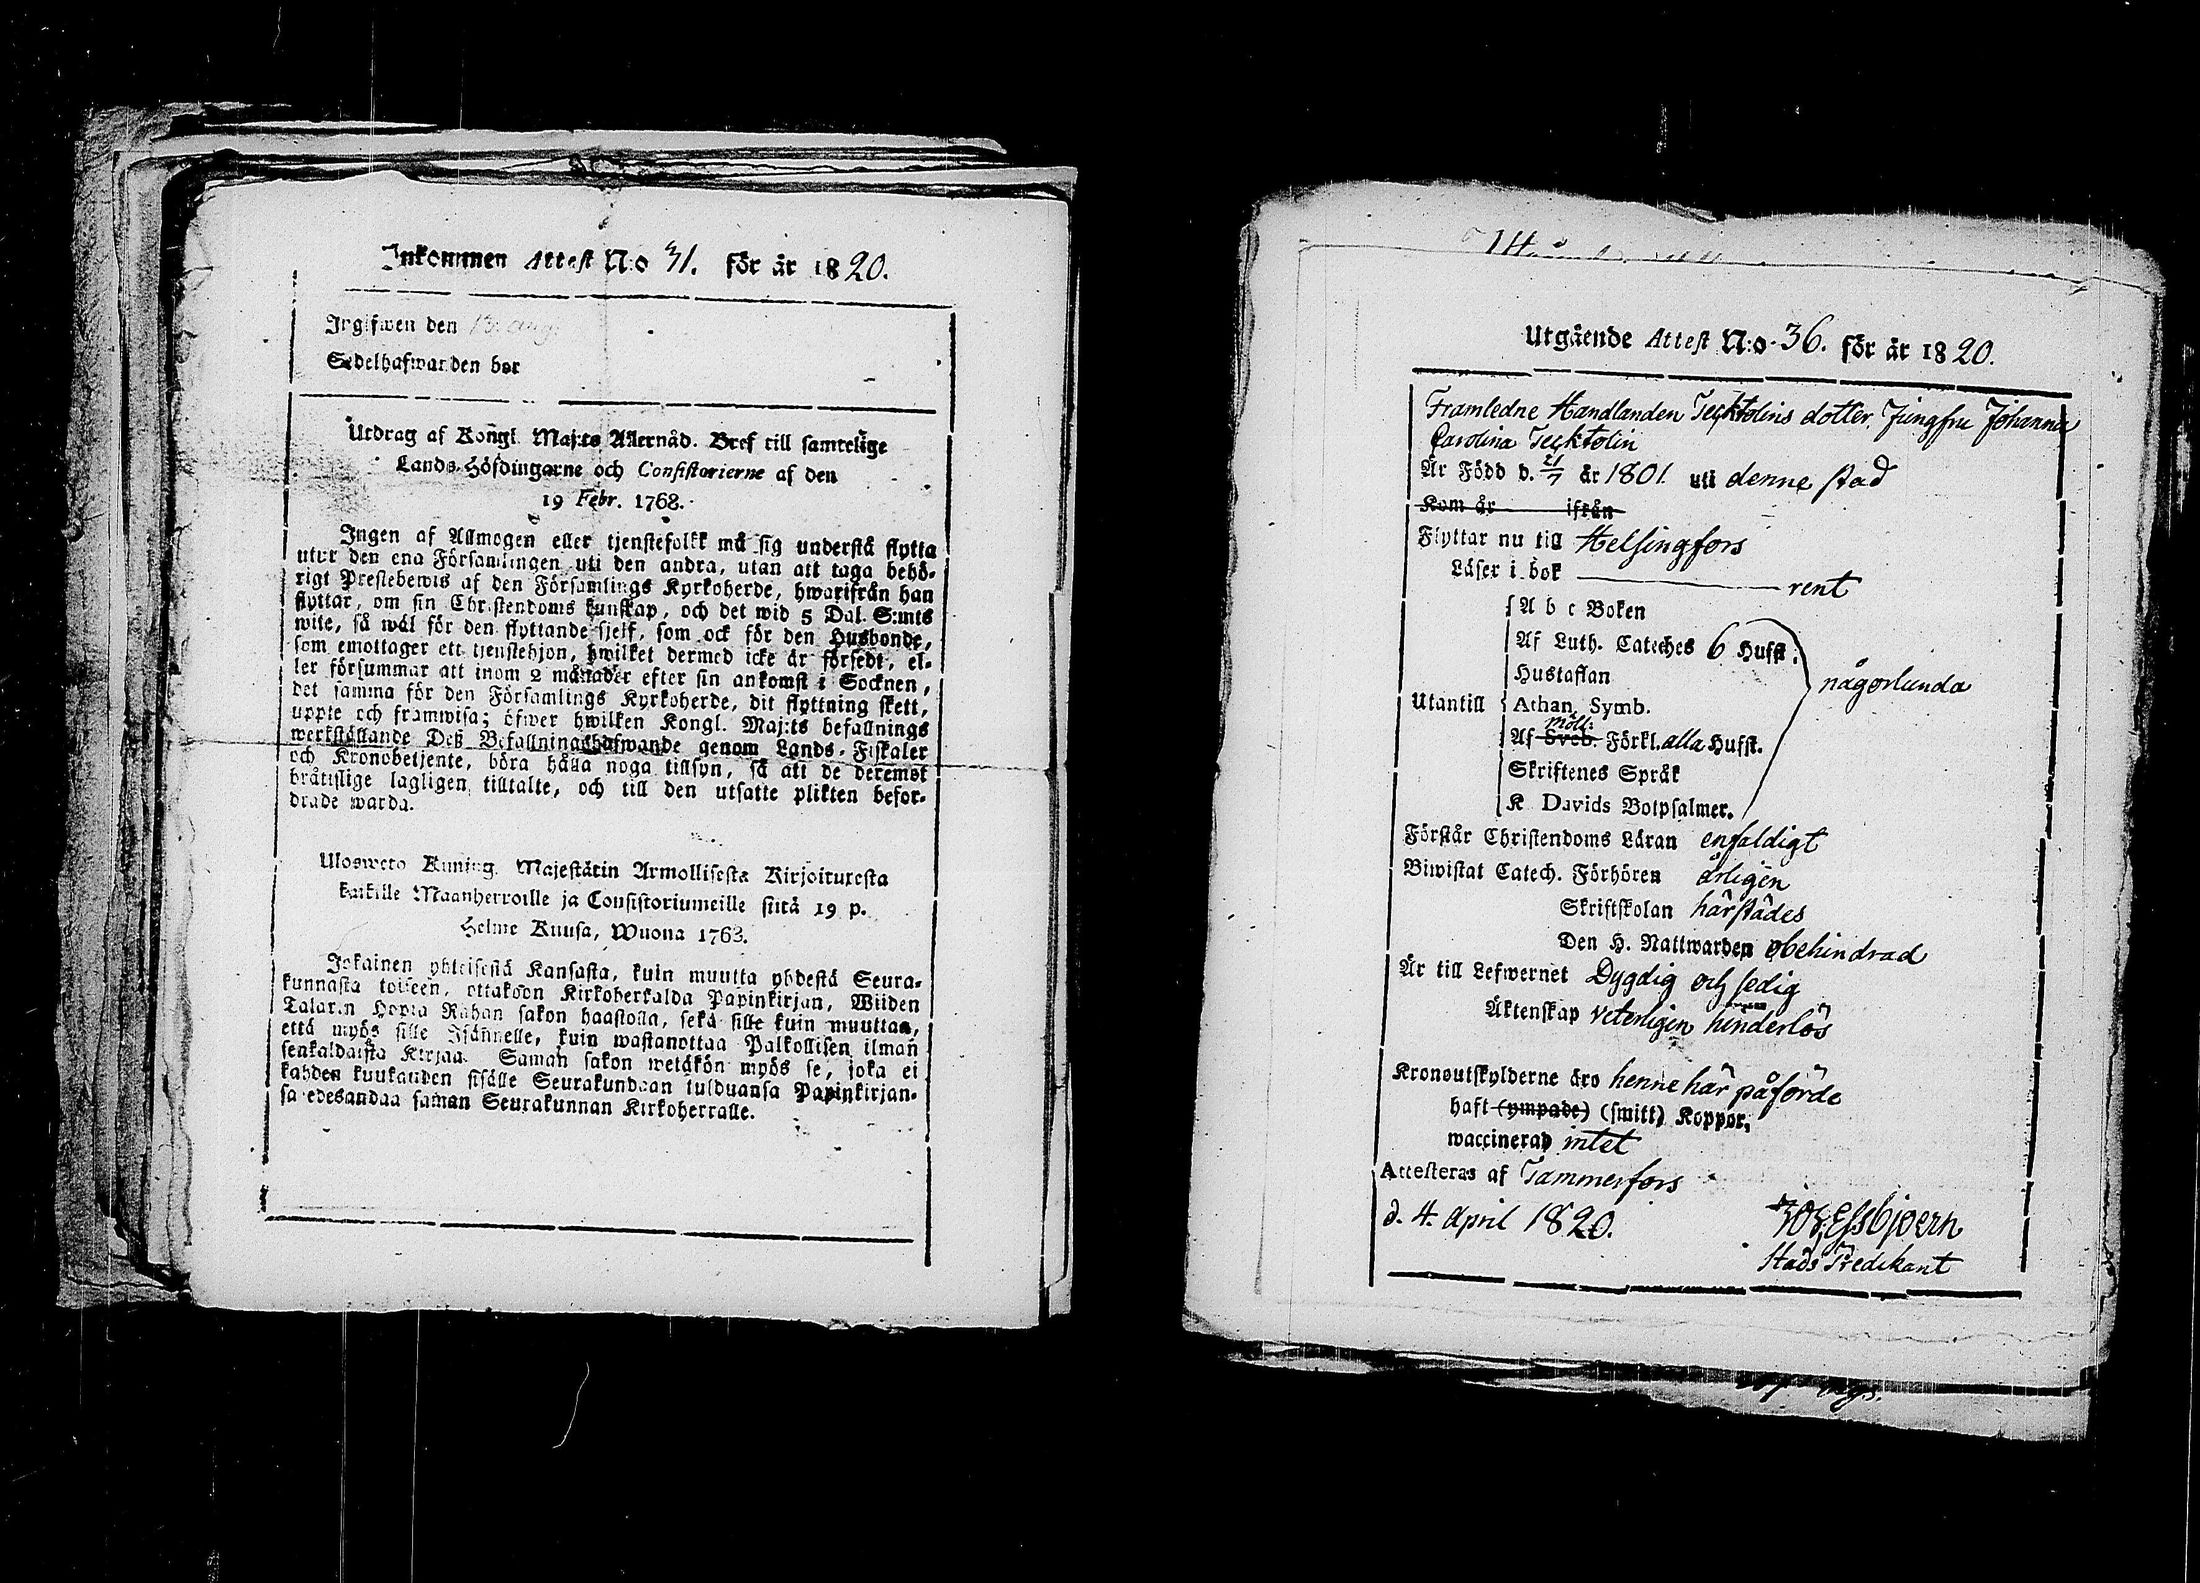 Inkommen Attest N:o 31. för år 1820.
Ingifwen den 13 aug.
Sedelhafwanden bor
Utdrag af Kongl. Maj:ts Allernåd. Bref till samtelige
Lands-Höfdingarne och Consistorierne af den
19 Febr. 1768.
Ingen af Allmogen eller tjenstefolkk må sig understå flytta
utur den ena Församlingen uti den andra, utan att taga behö-
rigt Prestebewis af den Församlings Kyrkoherde, hwarifrån han
flyttar, om sin Christendoms kunskap, och det wid 5 Dal. S:mts
wite, så wäl för den flyttande sjelf, som ock för den Husbonde,
som emottager ett tjenstehjon, hwilket dermed icke är försedt, el-
ler försummar att inom 2 månader efter sin ankomst i Socknen,
det samma för den Församlings Kyrkoherde, dit flyttning skett,
uppte och framwisa; öfwer hwilken Kongl. Maj:ts befallnings
werkställande Deß Befallningshafwande genom Lands-Fiskaler
och Kronobetjente, böra hålla noga tillsyn, så att de deremot
bråttslige lagligen tilltalte, och till den utsatte plikten befor-
drade warda.
Ulosweto Kuning. Majestätin Armollisesta Kirjoituxesta
kaikille Maanherroille ja Consistoriumeille siitä 19 p.
Helme Kuusa, Wuona 1763.
Jokainen yhteisestä Kansasta, kuin muutta yhdestä Seura-
kunnasta toiseen, ottakoon Kirkoherralda Papinkirjan, Wiiden
Talarin Hopia Rahan sakon haastolla, sekä sille kuin muuttaa,
että myös sille Isännelle, kuin wastanottaa Palkollisen ilman
senkaldaista Kirjaa. Saman sakon wetäkön myös se, joka ei
kahden kuukauden sisälle Seurakundaan tulduansa Papinkirjan-
sa edesandaa saman Seurakunnan Kirkoherralle.
Utgående Attest N:o 36. för år 1820.
Framledne Handlanden Tecktolins dotter Jungfru Johanna
Carolina Tecktolin
Är Född d. 21/7 år 1801. uti denne stad
Kom år ifrån
Flyttar nu till Helsingfors
Läser i bok rent
A b c Boken
Af Luth. Cateches 6 Hufst.
Hustaflan
någorlunda
Utantill Athan. Symb.
Möll:
Af Sveb. Förkl. alla Hufst.
Skriftenes Språk
K. Davids Botpsalmer.
Förstår Christendoms Läran enfaldigt
Biwistat Catech. Förhören årligen
Skriftskolan härstädes
Den H. Nattwarden obehindrad
Är till Lefwernet Dygdig och sedig
Äktenskap veterligen hinderlös
Kronoutskylderne äro henne här påförde
haft (ympade) (smitt) Koppor,
waccinerad intet
Attesteras af Tammerfors
d. 4. April 1820.
Stads Predikant